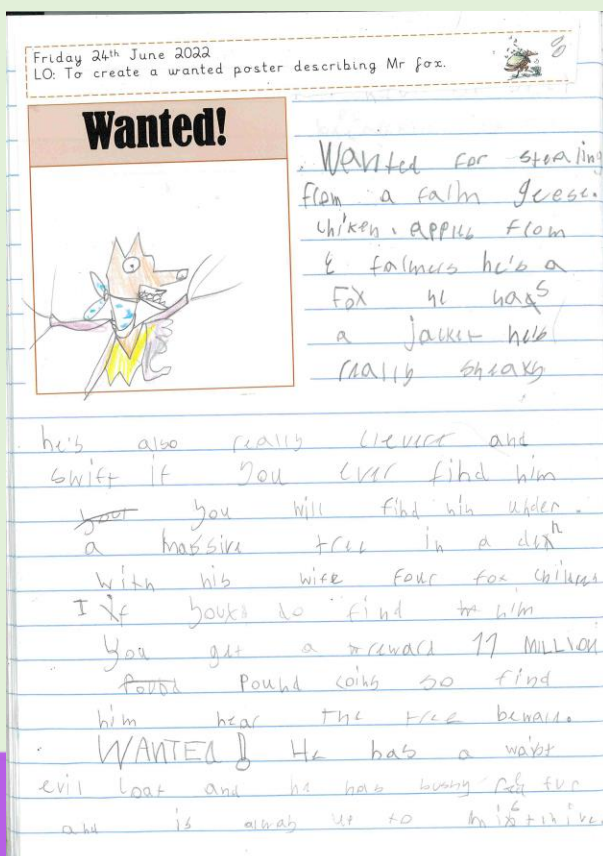 Friday 24th June 2022
LO: To create a wanted poster describing Mr fox.
Wanted!
Wanted for stealing
from a farm geese.
chiken. apples from
farmers he's a
Fox he has
a jacket he's
really sneaky
he's also really clever and
swift if you ever find him
you will find him under.
a massive tree in a den
with his wife four fox
If do find him
You get a reward 11 MILLION
Pound coins so find
him near the tree beware.
WANTED! He has a waist
evil coat and he has bushy red fur
and is alway up to